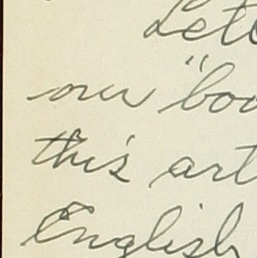 Let
our "boo
this art
English